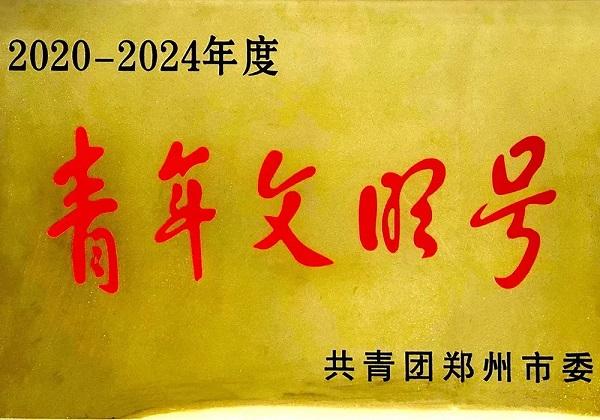 2020-2024年度
青年文明号
共青团郑州市委